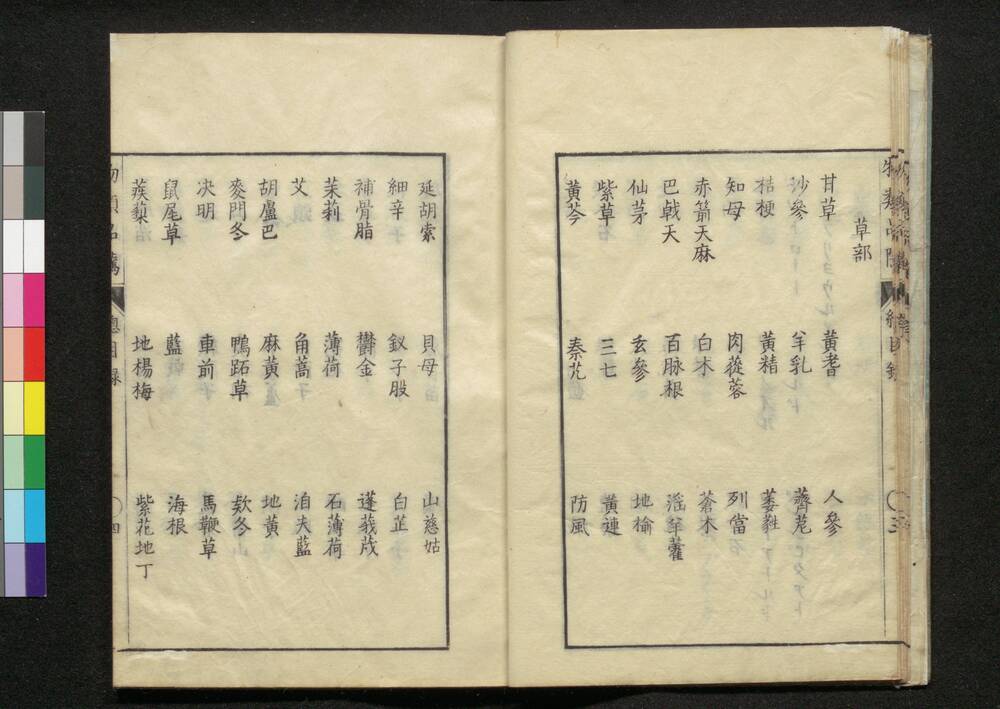 物類品隲 總目錄 三
草部
甘草 黃耆 人參
沙參 羊乳 薺苨
桔梗 黃精 萎蕤
知母 肉蓯蓉 列當
赤箭天麻 白朮 蒼朮
巴戟天 百脉根 淫羊藿
仙茅 玄參 地榆
紫草 三七 黃連
黃芩 秦艽 防風
延胡索 貝母 山慈姑
細辛 釵子股 白芷
補骨脂 鬱金 蓬莪茂
茉莉 薄荷 石薄荷
艾 角蒿 洎夫藍
胡盧巴 麻黃 地黃
麥門冬 鴨跖草 欵冬
决明 車前 馬鞭草
鼠尾草 藍 海根
蒺藜 地楊梅 紫花地丁
物類品隲 總目錄 四